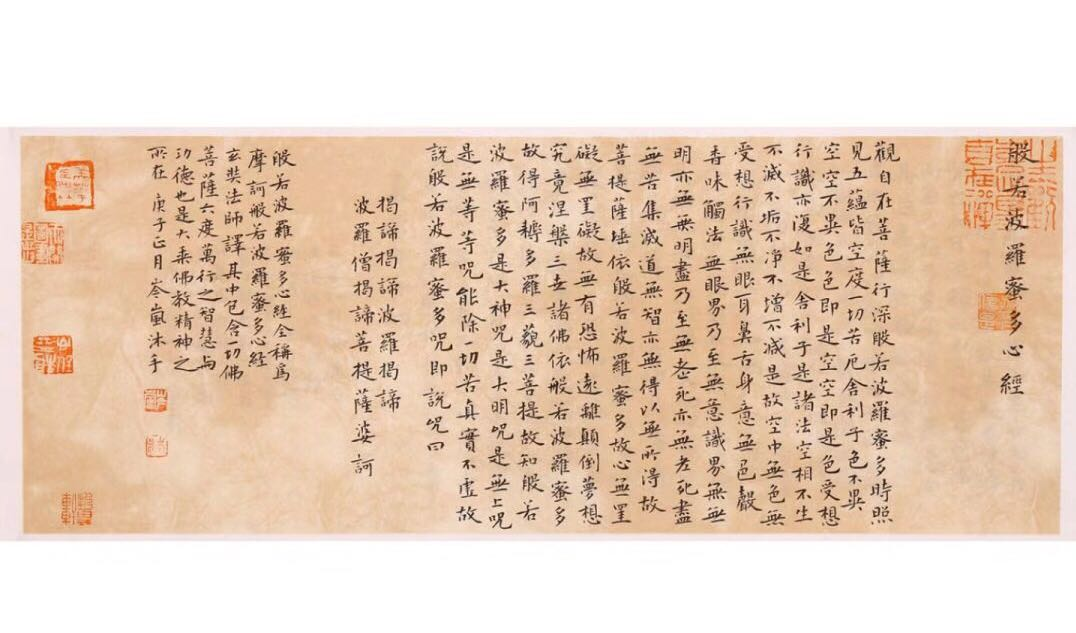 般若波羅蜜多心經
觀自在菩薩行深般若波羅蜜多時照
見五蘊皆空度一切苦厄舍利子色不異
空空不異色色即是空空即是色受想
行識亦復如是舍利子是諸法空相不生
不滅不垢不净不增不減是故空中無色無
受想行識無眼耳鼻舌身意無色聲
香味觸法無眼界乃至無意識界無無
明亦無無明盡乃至無老死亦無老死盡
無苦集滅道無智亦無得以無所得故
菩提薩埵依般若波羅蜜多故心無罣
礙無罣礙故無有恐怖遠離顛倒夢想
究竟涅槃三世諸佛依般若波羅蜜多
故得阿耨多羅三藐三菩提故知般若
波羅蜜多是大神咒是大明咒是無上咒
是無等等咒能除一切苦真實不虛故
說般若波羅蜜多咒即說咒曰
揭諦揭諦波羅揭諦
波羅僧揭諦菩提薩婆訶
般若波羅蜜多心經全稱爲
摩訶般若波羅蜜多心經
玄奘法師譯其中包含一切佛
菩薩六度萬行之智慧与
功德也是大乘佛教精神之
所在 庚子正月岑嵐沐手